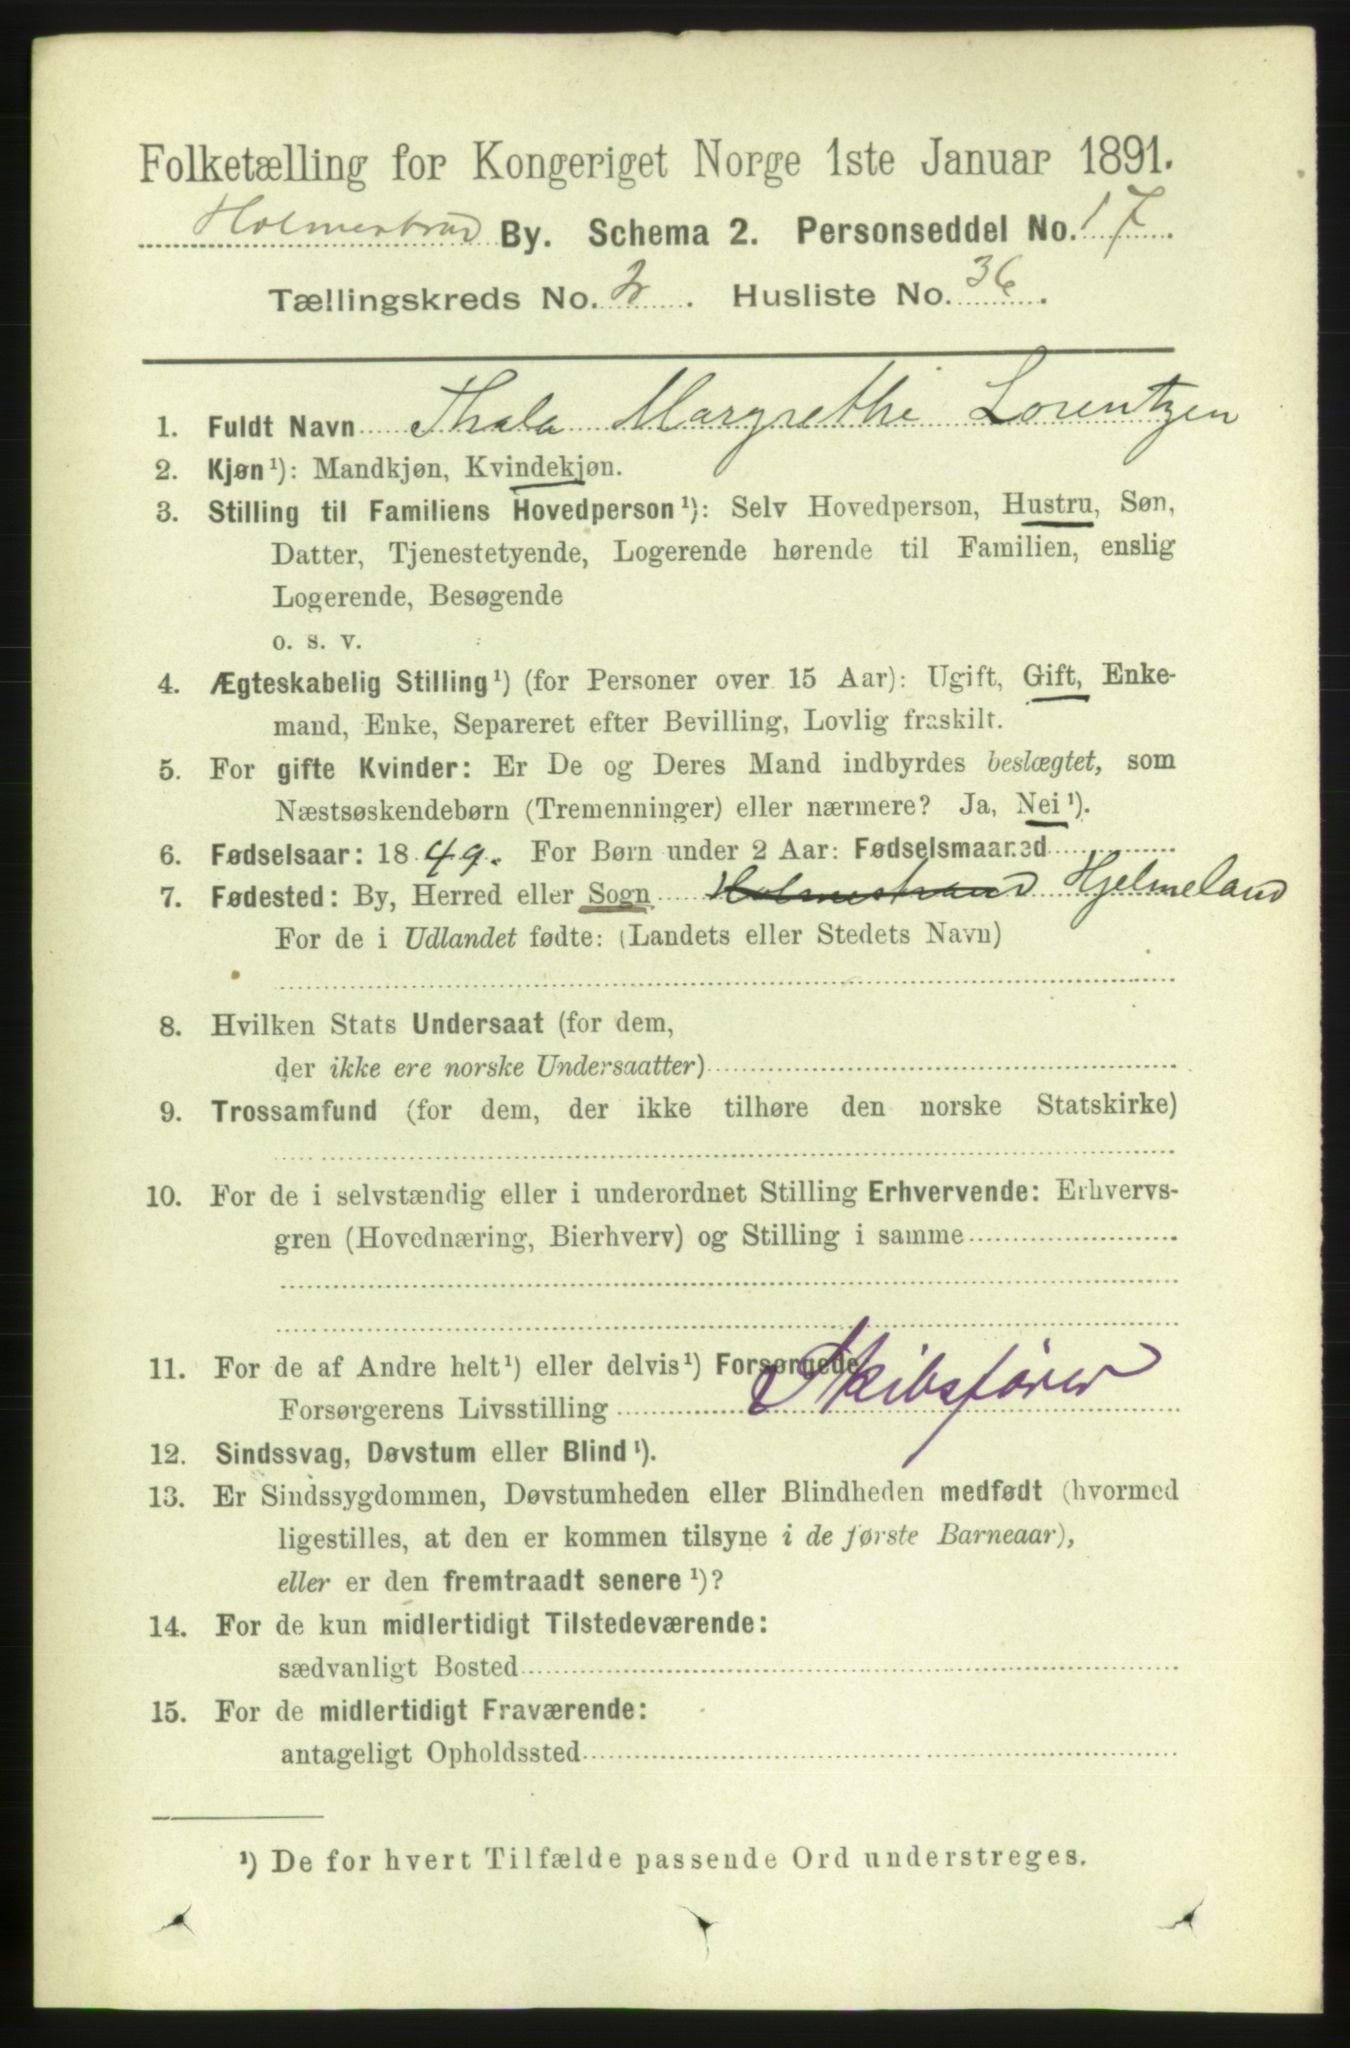 Folketælling for Kongeriget Norge 1ste Januar 1891.
Holmestrand By. Schema 2. Personseddel No. 17.
Tællingskreds No. 2. Husliste No. 36.
1. Fuldt Navn Thala Margrethe Lorentzen
2. Kjøn¹): Mandkjøn, Kvindekjøn.
3. Stilling til Familiens Hovedperson¹): Selv Hovedperson, Hustru, Søn,
Datter, Tjenestetyende, Logerende hørende til Familien, enslig
Logerende, Besøgende
o. s. v.
4. Ægteskabelig Stilling¹) (for Personer over 15 Aar): Ugift, Gift, Enke-
mand, Enke, Separeret efter Bevilling, Lovlig fraskilt.
5. For gifte Kvinder: Er De og Deres Mand indbyrdes beslægtet, som
Næstsøskendebørn (Tremenninger) eller nærmere? Ja, Nei¹).
6. Fødselsaar: 1849. For Børn under 2 Aar: Fødselsmaaned
7. Fødested: By, Herred eller Sogn Holmestrand Hjelmeland
For de i Udlandet fødte: (Landets eller Stedets Navn)
8. Hvilken Stats Undersaat (for dem,
der ikke ere norske Undersaatter)
9. Trossamfund (for dem, der ikke tilhøre den norske Statskirke)
10. For de i selvstændig eller i underordnet Stilling Erhvervende: Erhvervs-
gren (Hovednæring, Bierhverv) og Stilling i samme
11. For de af Andre helt¹) eller delvis¹) Forsørgede
Forsørgerens Livsstilling Skibsfører
12. Sindssvag, Døvstum eller Blind¹).
13. Er Sindssygdommen, Døvstumheden eller Blindheden medfødt (hvormed
ligestilles, at den er kommen tilsyne i de første Barneaar),
eller er den fremtraadt senere¹)?
14. For de kun midlertidigt Tilstedeværende:
sædvanligt Bosted
15. For de midlertidigt Fraværende:
antageligt Opholdssted
¹) De for hvert Tilfælde passende Ord understreges.